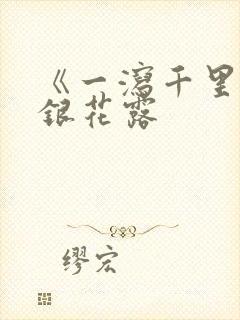 《一瀉千里
銀花露
缪宏